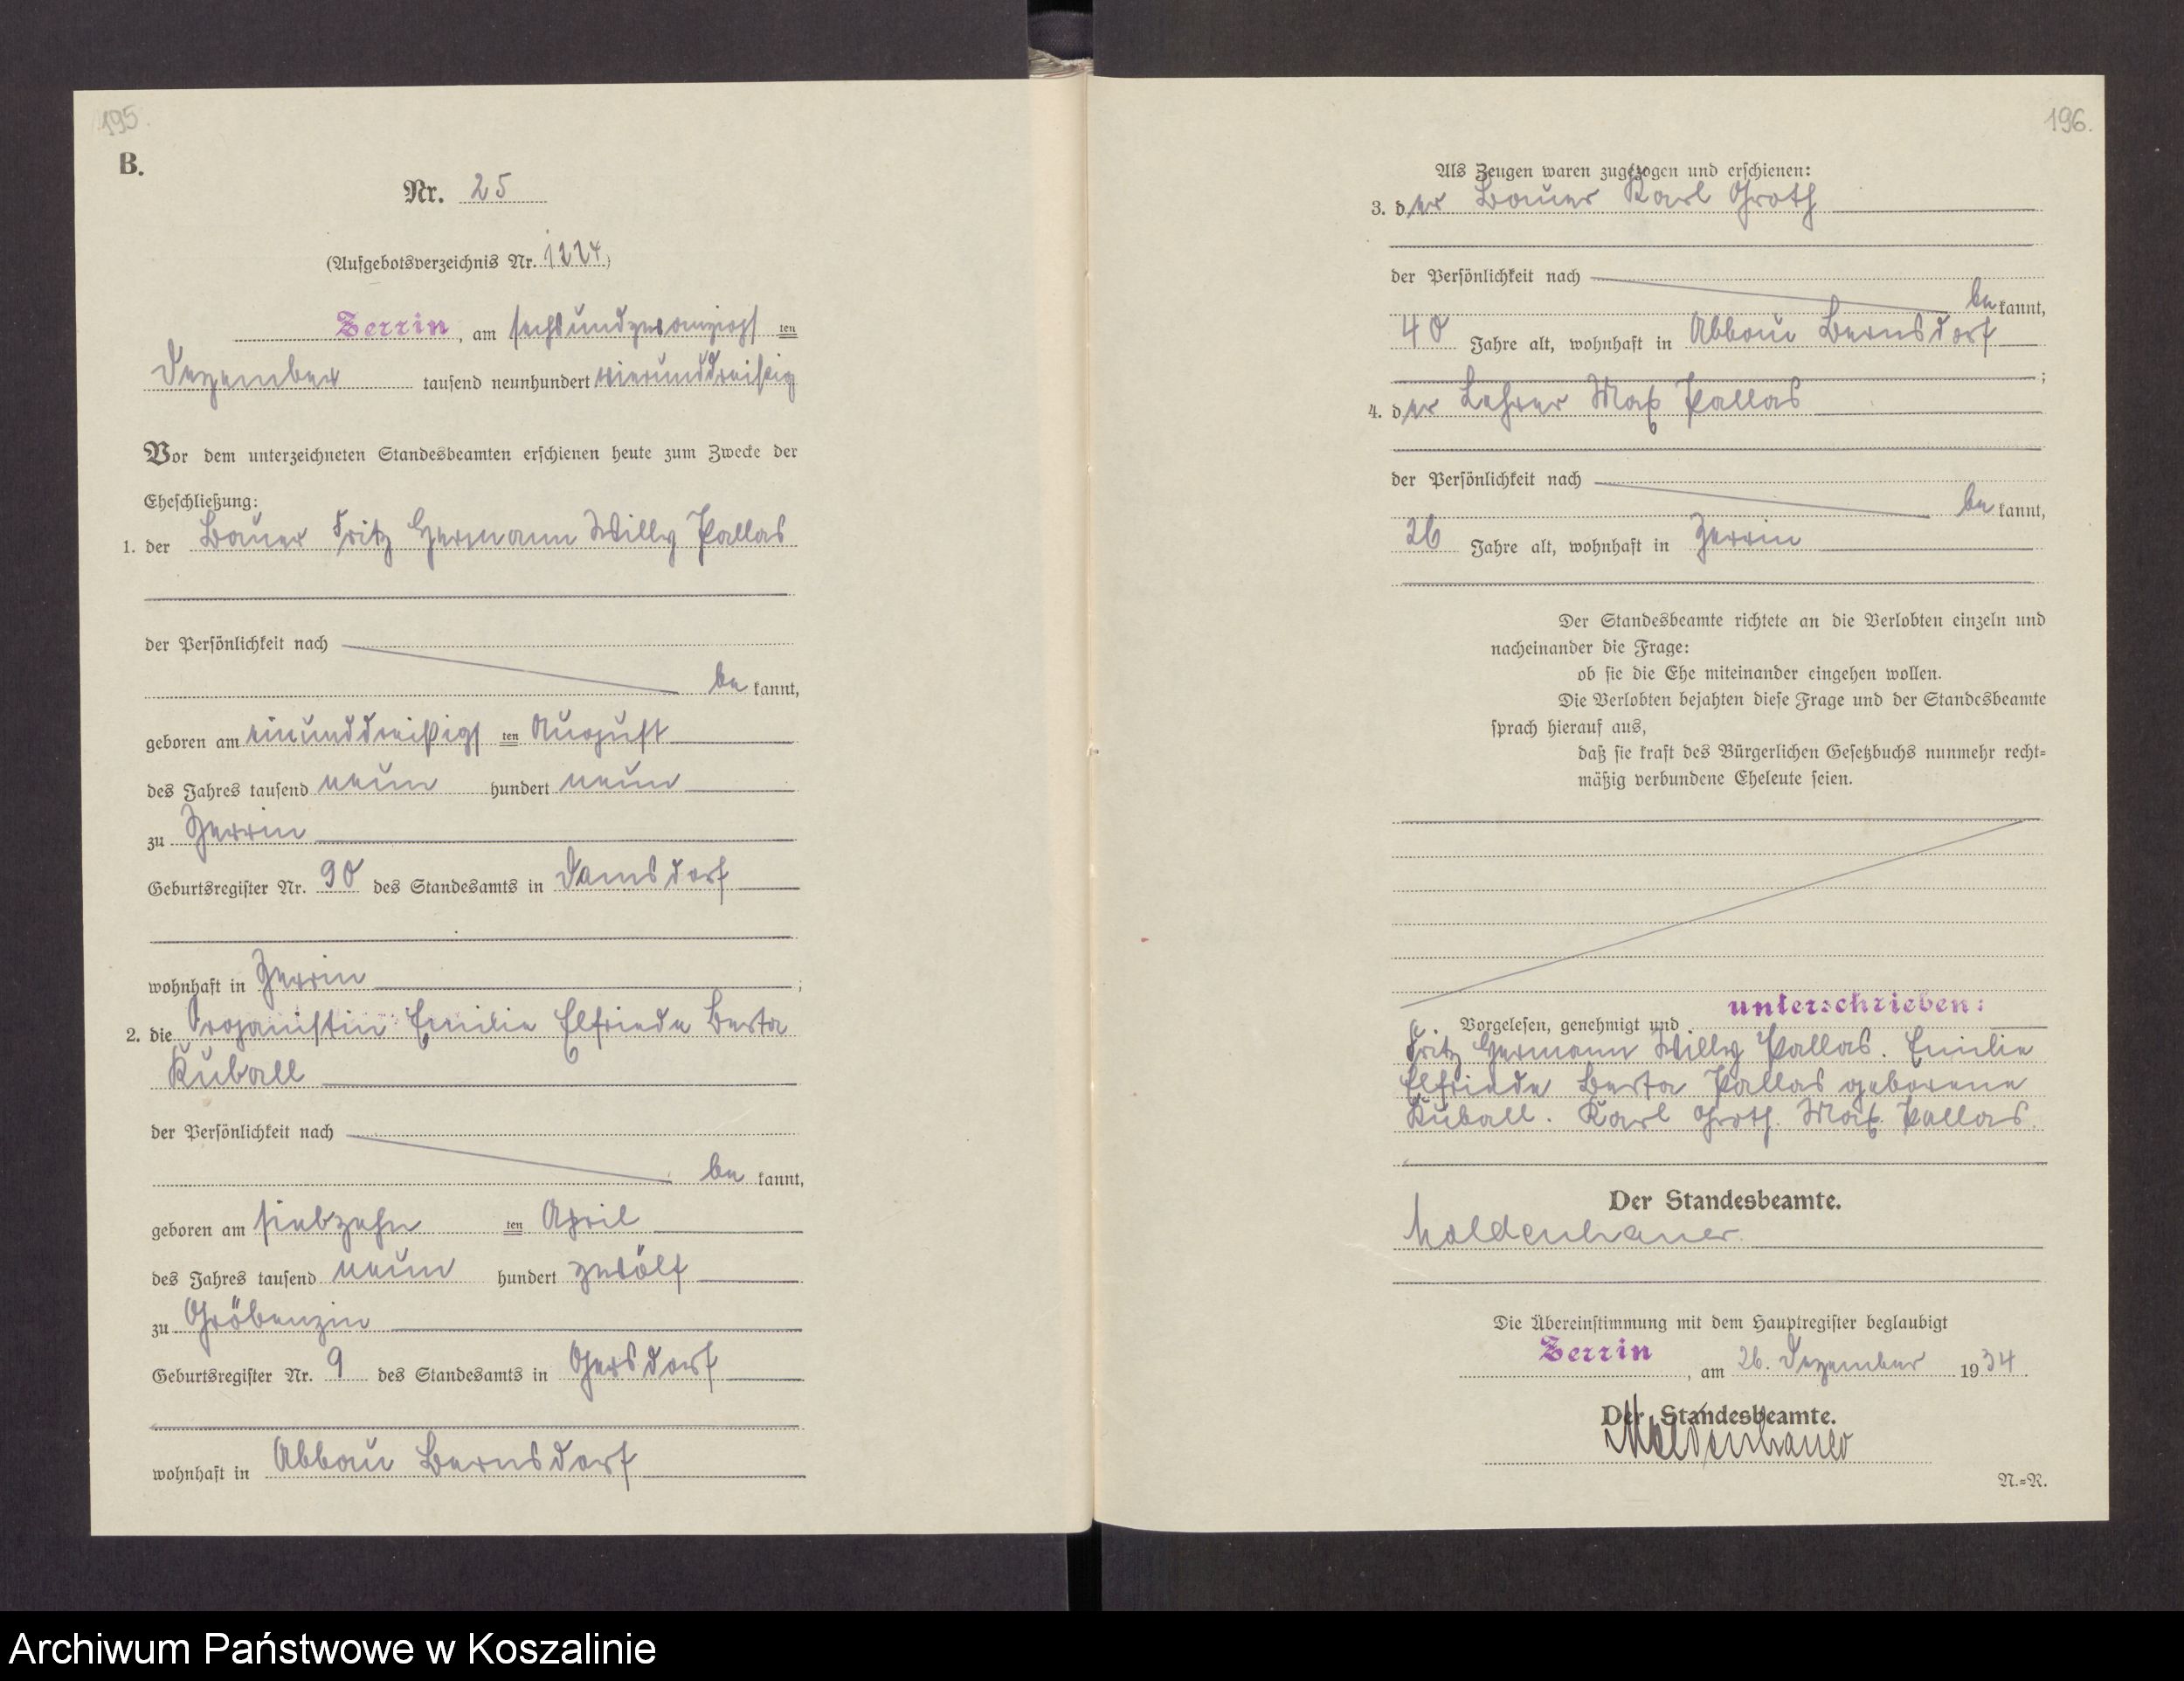 195.
B.
Nr. 25
(Aufgebotsverzeichnis Nr. 1224)
Zerrin, am sechsundzwanzigsten
Dezember tausend neunhundert vierunddreißig
Vor dem unterzeichneten Standesbeamten erschienen heute zum Zwecke der
Eheschließung:
1. der Bauer Fritz Hermann Willy Pallas
der Persönlichkeit nach
be kannt,
geboren am einunddreißigsten August
des Jahres tausend neun hundert neun
zu Zerrin
Geburtsregister Nr. 90 des Standesamts in Damsdorf
wohnhaft in Zerrin ;
2. die Organistin Emilie Elfriede Berta
Kuball
der Persönlichkeit nach
be kannt,
geboren am siebzehn ten April
des Jahres tausend neun hundert zwölf
zu Gröbenzin
Geburtsregister Nr. 9 des Standesamts in Gersdorf
wohnhaft in Abbau Bernsdorf
196.
Als Zeugen waren zugezogen und erschienen:
3. der Bauer Karl Groth
der Persönlichkeit nach
be kannt,
40 Jahre alt, wohnhaft in Abbau Bernsdorf
;
4. der Lehrer Max Pallas
der Persönlichkeit nach
be kannt,
26 Jahre alt, wohnhaft in Zerrin
Der Standesbeamte richtete an die Verlobten einzeln und
nacheinander die Frage:
ob sie die Ehe miteinander eingehen wollen.
Die Verlobten bejahten diese Frage und der Standesbeamte
sprach hierauf aus,
daß sie kraft des Bürgerlichen Gesetzbuchs nunmehr recht=
mäßig verbundene Eheleute seien.
Vorgelesen, genehmigt und unterschrieben:
Fritz Hermann Willy Pallas. Emilie
Elfriede Berta Pallas geborene
Kuball. Karl Groth. Max Pallas.
Der Standesbeamte.
Moldenhauer.
Die Übereinstimmung mit dem Hauptregister beglaubigt
Zerrin, am 26. Dezember 1934.
Der Standesbeamte.
Moldenhauer
N.=R.
Archiwum Państwowe w Koszalinie